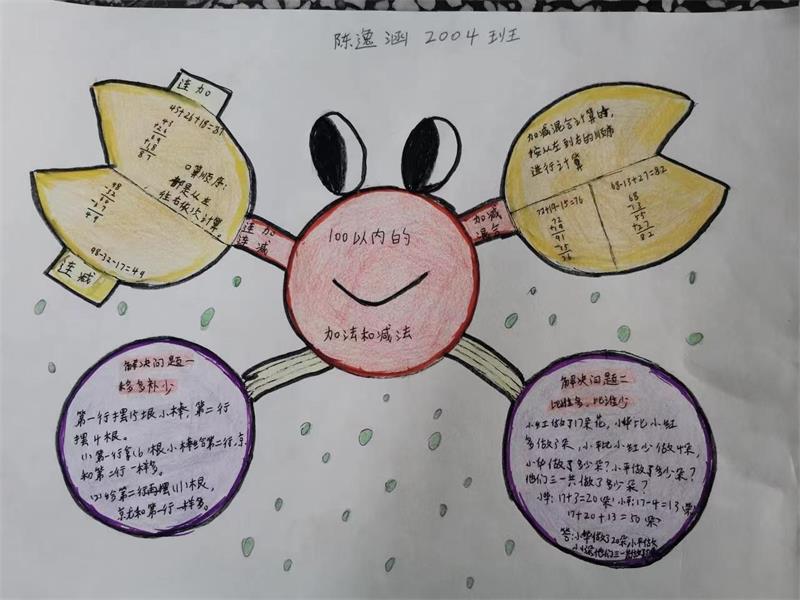 陈逸涵 2004班
连加
45+26+18=89
45
+26
+18
89
口算顺序:
都是从左
往右依次计算。
98
-32
-17
49
98-32-17=49
连减
连加
连减
加减
混合
加减混合计算时,
按从左到右的顺序
进行计算
72+19-15=76
72
+19
91
-15
68-13+27=82
68
-13
55
+27
82
100以内的
加法和减法
解决问题一
移多补少
第一行摆15根小棒,第二行
摆4根。
(1)第一行拿( )根小棒给第二行,
和第二行一样多。
(2)给第二行再摆(11)根,
就和第一行一样多。
解决问题二
比谁多,比谁少
小红做了17朵花,小华比小红
多做了3朵,小平比小红少做4朵,
小华做了多少朵?小平做了多少朵?
他们三一共做了多少朵?
小华:17+3=20朵 小平:17-4=13朵
17+20+13=50朵
答:小华做了20朵,小平做